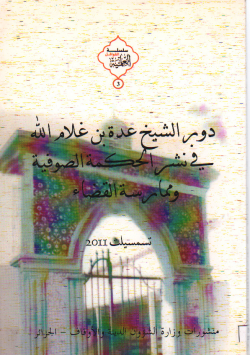 سلسلة
3
دور الشيخ عدة بن غلام الله
في نشر الحكمة الصوفية
وممارسة القضاء
تسمسيلت 2011
منشورات وزارة الشؤون الدينية والأوقاف - الجزائر